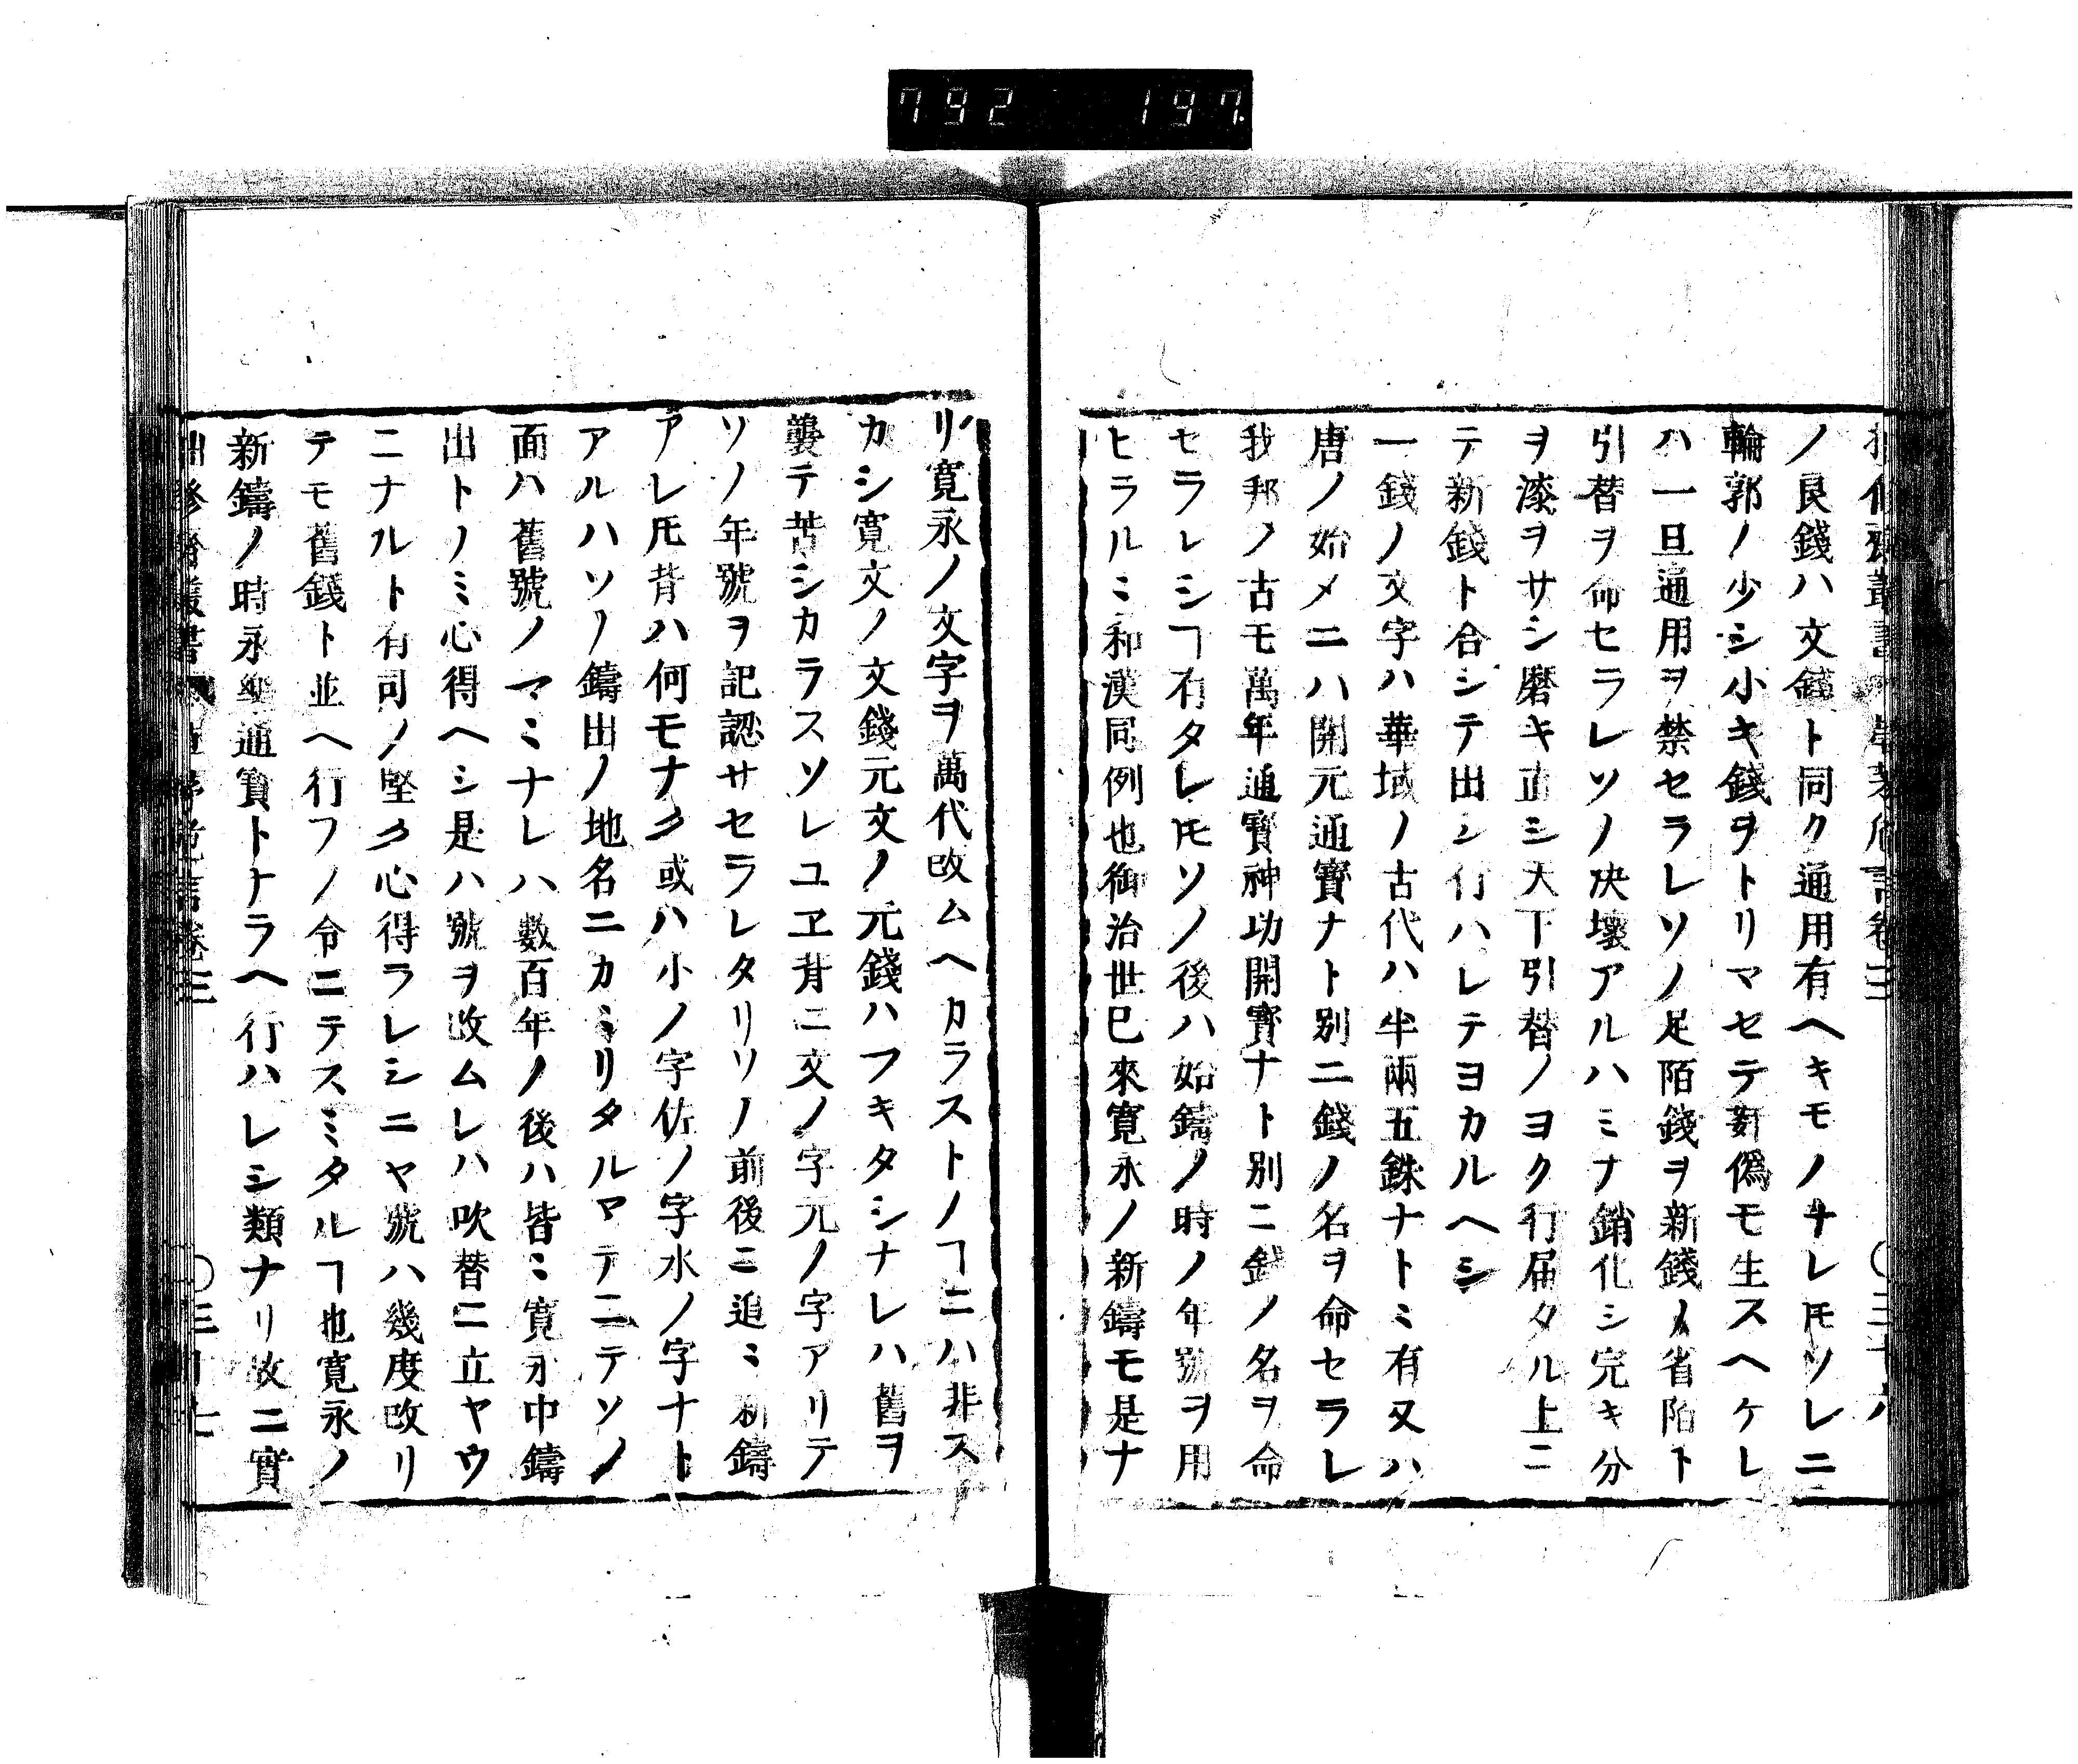 792 197
ノ良錢ハ文錢ト同ク通用有ヘキモノナレ𪜈ソレニ
輪郭ノ少シ小キ錢ヲトリマセテ新僞モ生スヘケレ
ハ一旦通用ヲ禁セラレソノ足陌錢ヲ新錢ノ省陌ト
引替ヲ命セラレソノ决壞アルハミナ銷化シ完キ分
ヲ漆ヲサシ磨キ直シ天下引替ノヨク行届タル上ニ
テ新錢ト合シテ出シ行ハレテヨカルヘシ
一錢ノ文字ハ華域ノ古代ハ半兩五銖ナトミ有又ハ
唐ノ始メニハ開元通寳ナト別ニ錢ノ名ヲ命セラレ
我邦ノ古モ萬年通寳神功開寳ナト別ニ錢ノ名ヲ命
セラレシヿ有タレ𪜈ソノ後ハ始鑄ノ時ノ年號ヲ用
ヒラルミ和漢同例也御治世已來寛永ノ新鑄モ是ナ
リ寛永ノ文字ヲ萬代改ムヘカラストノヿニハ非ス
カシ寛文ノ文錢元文ノ元錢ハフキタシナレハ舊ヲ
襲テ苦シカラスソレユヱ背ニ文ノ字元ノ字アリテ
ソノ年號ヲ記認サセラレタリソノ前後ニ追ミ新鑄
アレ𪜈背ハ何モナク或ハ小ノ字佐ノ字水ノ字ナト
アルハソノ鑄出ノ地名ニカミリタルマテニテソノ
面ハ舊號ノマミナレハ數百年ノ後ハ皆ミ寛永中鑄
出トノミ心得ヘシ是ハ號ヲ改ムレハ吹替ニ立ヤウ
ニナルト有司ノ堅ク心得ラレシニヤ號ハ幾度改リ
テモ舊錢ト並ヘ行フノ令ニテスミタルヿ也寛永ノ
新鑄ノ時永樂通寳トナラヘ行ハレシ類ナリ故ニ實